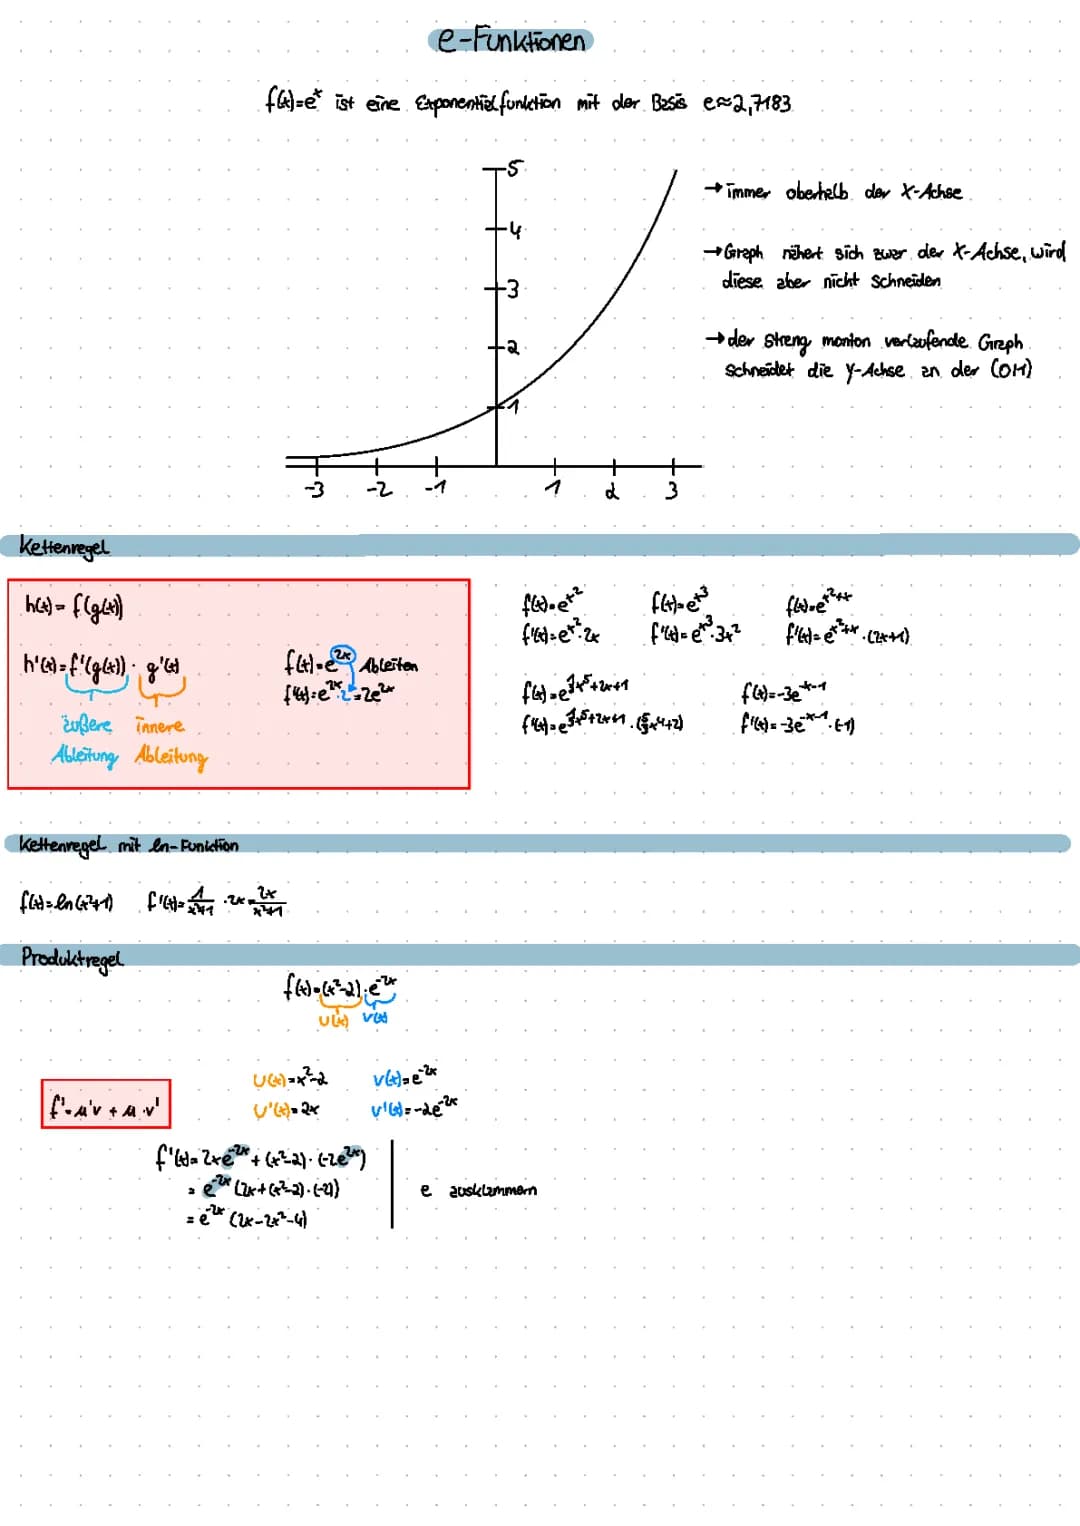 e-Funktionen
f(x)=e^x ist eine Exponentialfunktion mit der Basis e≈2,7183
5
4
3
2
1
-3 -2 -1 1 2 3
→ immer oberhalb der X-Achse
→ Graph nähert sich zwar der X-Achse, wird
diese aber nicht schneiden
→ der streng monton verlaufende Graph
schneidet die Y-Achse an der (0|1)
Kettenregel
h(x) = f(g(x))
h'(x) = f'(g(x)) · g'(x)
äußere innere
Ableitung Ableitung
f(x)=e^2x Ableiten
f'(x)=e^2x·2=2e^2x
f(x)=e^x² f(x)=e^x³ f(x)=e^x²+x
f'(x)=e^x²·2x f'(x)=e^x³·3x² f'(x)=e^x²+x·(2x+1)
f(x)=e^1/3x⁵+2x+1 f(x)=-3e^-x-1
f'(x)=e^1/3x⁵+2x+1·(5/3x⁴+2) f'(x)=-3e^-x-1·(-1)
Kettenregel mit ln-Funktion
f(x)=ln(x²+1) f'(x)=1/x²+1 ·2x=2x/x²+1
Produktregel
f(x)=(x²-2)·e^-2x
U(x) V(x)
U(x)=x²-2 V(x)=e^-2x
U'(x)=2x V'(x)=-2e^-2x
f'=u'v + u·v'
f'(x)=2xe^-2x + (x²-2)·(-2e^-2x)
= e^-2x (2x+(x²-2)·(-2)) e ausklammern
= e^-2x (2x-2x²-4)